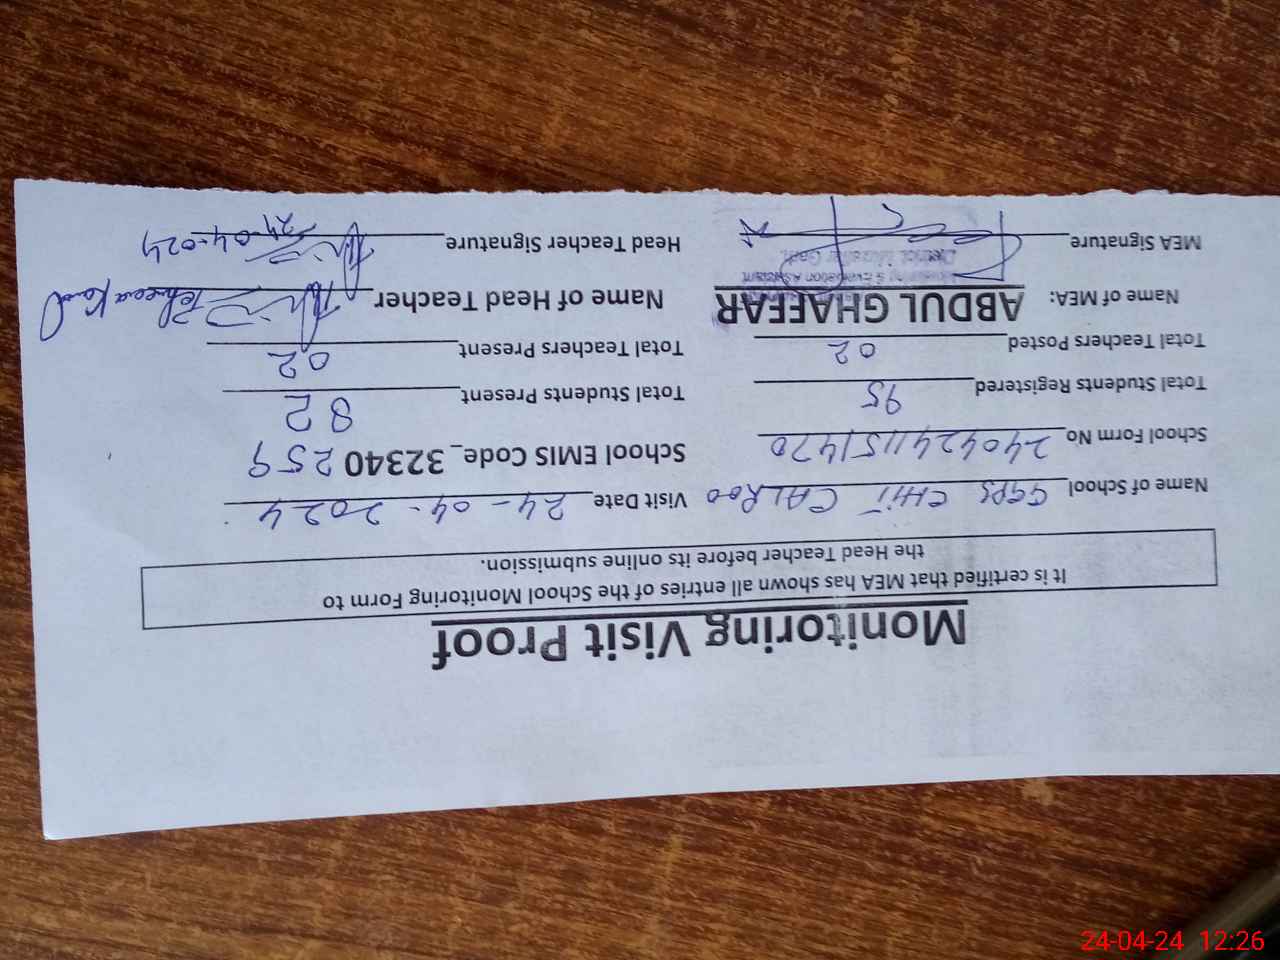 Monitoring Visit Proof
It is certified that MEA has shown all entries of the School Monitoring Form to
the Head Teacher before its online submission.
Name of School GGPS CHHIT CALROO Visit Date 24-04-2024
School Form No 240424115/470 School EMIS Code_32340259
Total Students Registered 95 Total Students Present 82
Total Teachers Posted 02 Total Teachers Present 02
Name of MEA: ABDUL GHAFFAR Name of Head Teacher
Monitoring & Evaluation Assistant
District Muzaffar Garh
MEA Signature Head Teacher Signature 24-04-024
24-04-24 12:26